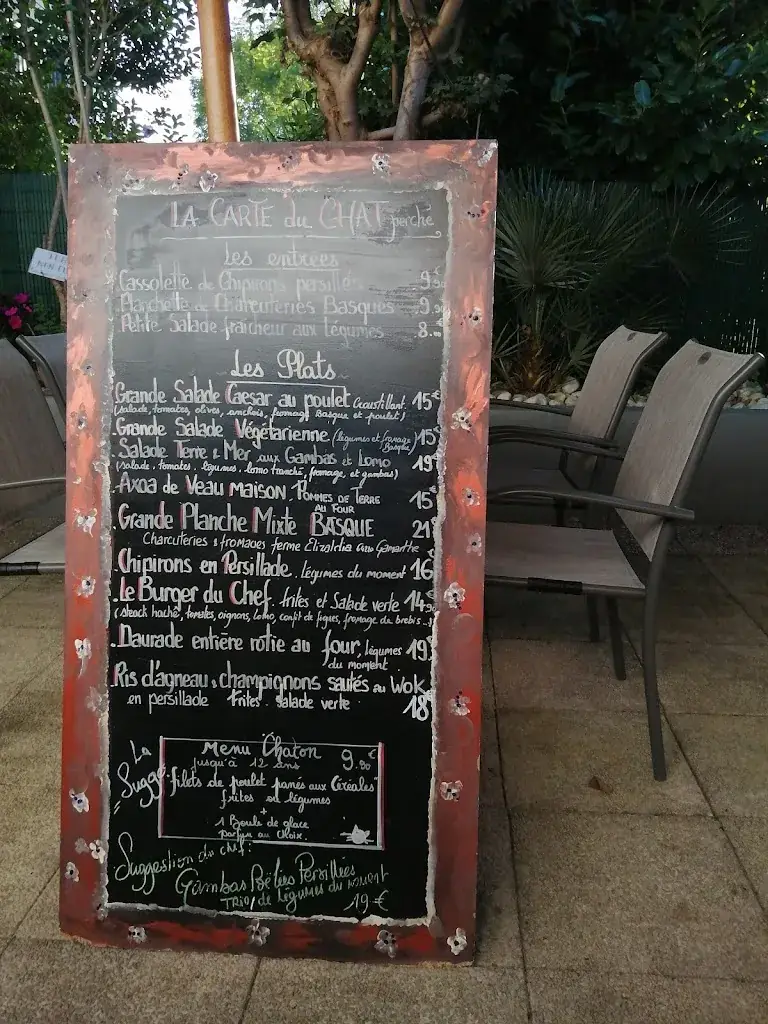 LA CARTE du CHAT perché
Les entrées
Cassolette de Chipirons persillés 9.90
Planchette de Charcuteries Basques 9.90
Petite Salade fraîcheur aux légumes 8.
Les Plats
Grande Salade Caesar au poulet Croustillant. 15€
(salade, tomates, olives, anchois, fromage Basque et poulet)
Grande Salade Végétarienne (légumes et fromage Basque) 15€
Salade Terre & Mer aux Gambas et Lomo 19€
(salade. tomates. légumes. lomo tranché, fromage, et gambas)
Axoa de Veau maison. Pommes de Terre au Four 15€
Grande Planche Mixte BASQUE 21€
Charcuteries & fromages ferme Elizaldia
Chipirons en Persillade. Légumes du moment 16€
Le Burger du Chef. frites et Salade verte 14.90
(steack haché, tomates, oignons, Lomo, confit de figues, fromage de brebis...)
Daurade entière rotie au four, légumes du moment 19€
Ris d'agneau & champignons sautés au Wok
en persillade frites salade verte 18€
La Sugge
Menu Chaton 9.90€
jusqu'à 12 ans
filets de poulet panés aux Céréales
frites ou légumes
+
1 Boule de glace
parfum au choix.
Suggestion du chef:
Gambas Poêlées Persillées
TRIO de légumes du moment
19€